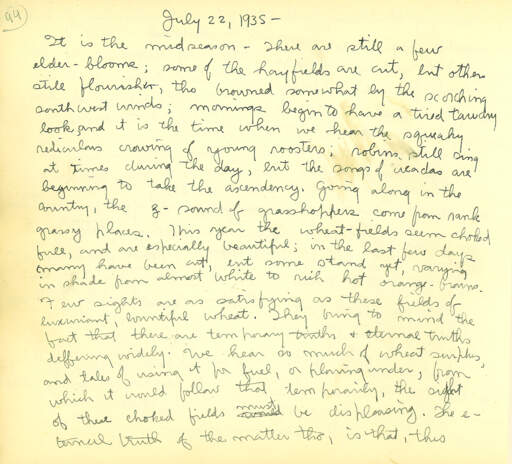 99
July 22, 1935-
It is the midseason - There are still a few
elder-blooms; some of the hayfields are cut, but others
still flourish, tho browned somewhat by the scorching
southwest winds; mornings begin to have a tired tawdry
look, and it is the time when we hear the squeaky
rediculous crowing of young roosters; robins still sing
at times during the day, but the songs of cicadas are
beginning to take the ascendency. Going along in the
country, the z-sound of grasshoppers come from rank
grassy places. This year the wheat-fields seem choked
full, and are especially beautiful; in the last few days
many have been cut, but some stand yet, varying
in shade from almost white to rich hot orange-browns.
Few sights are as satisfying as these fields of
luxuriant, bountiful wheat. They bring to mind the
fact that there are temporary truths & eternal truths
deffering widely. We hear so much of wheat surplus,
and tales of using it for fuel, or plowing under, from
which it would follow that temporarily, the sight
of these choked fields must be displeasing. The e-
ternal truth of the matter tho, is that, this